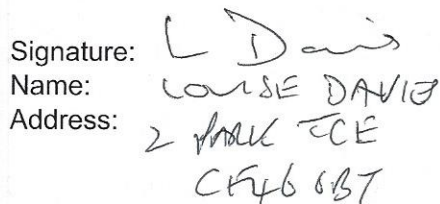 Signature: L Davis
Name: LOUISE DAVIS
Address: 2 PARK TCE
CF46 6BT